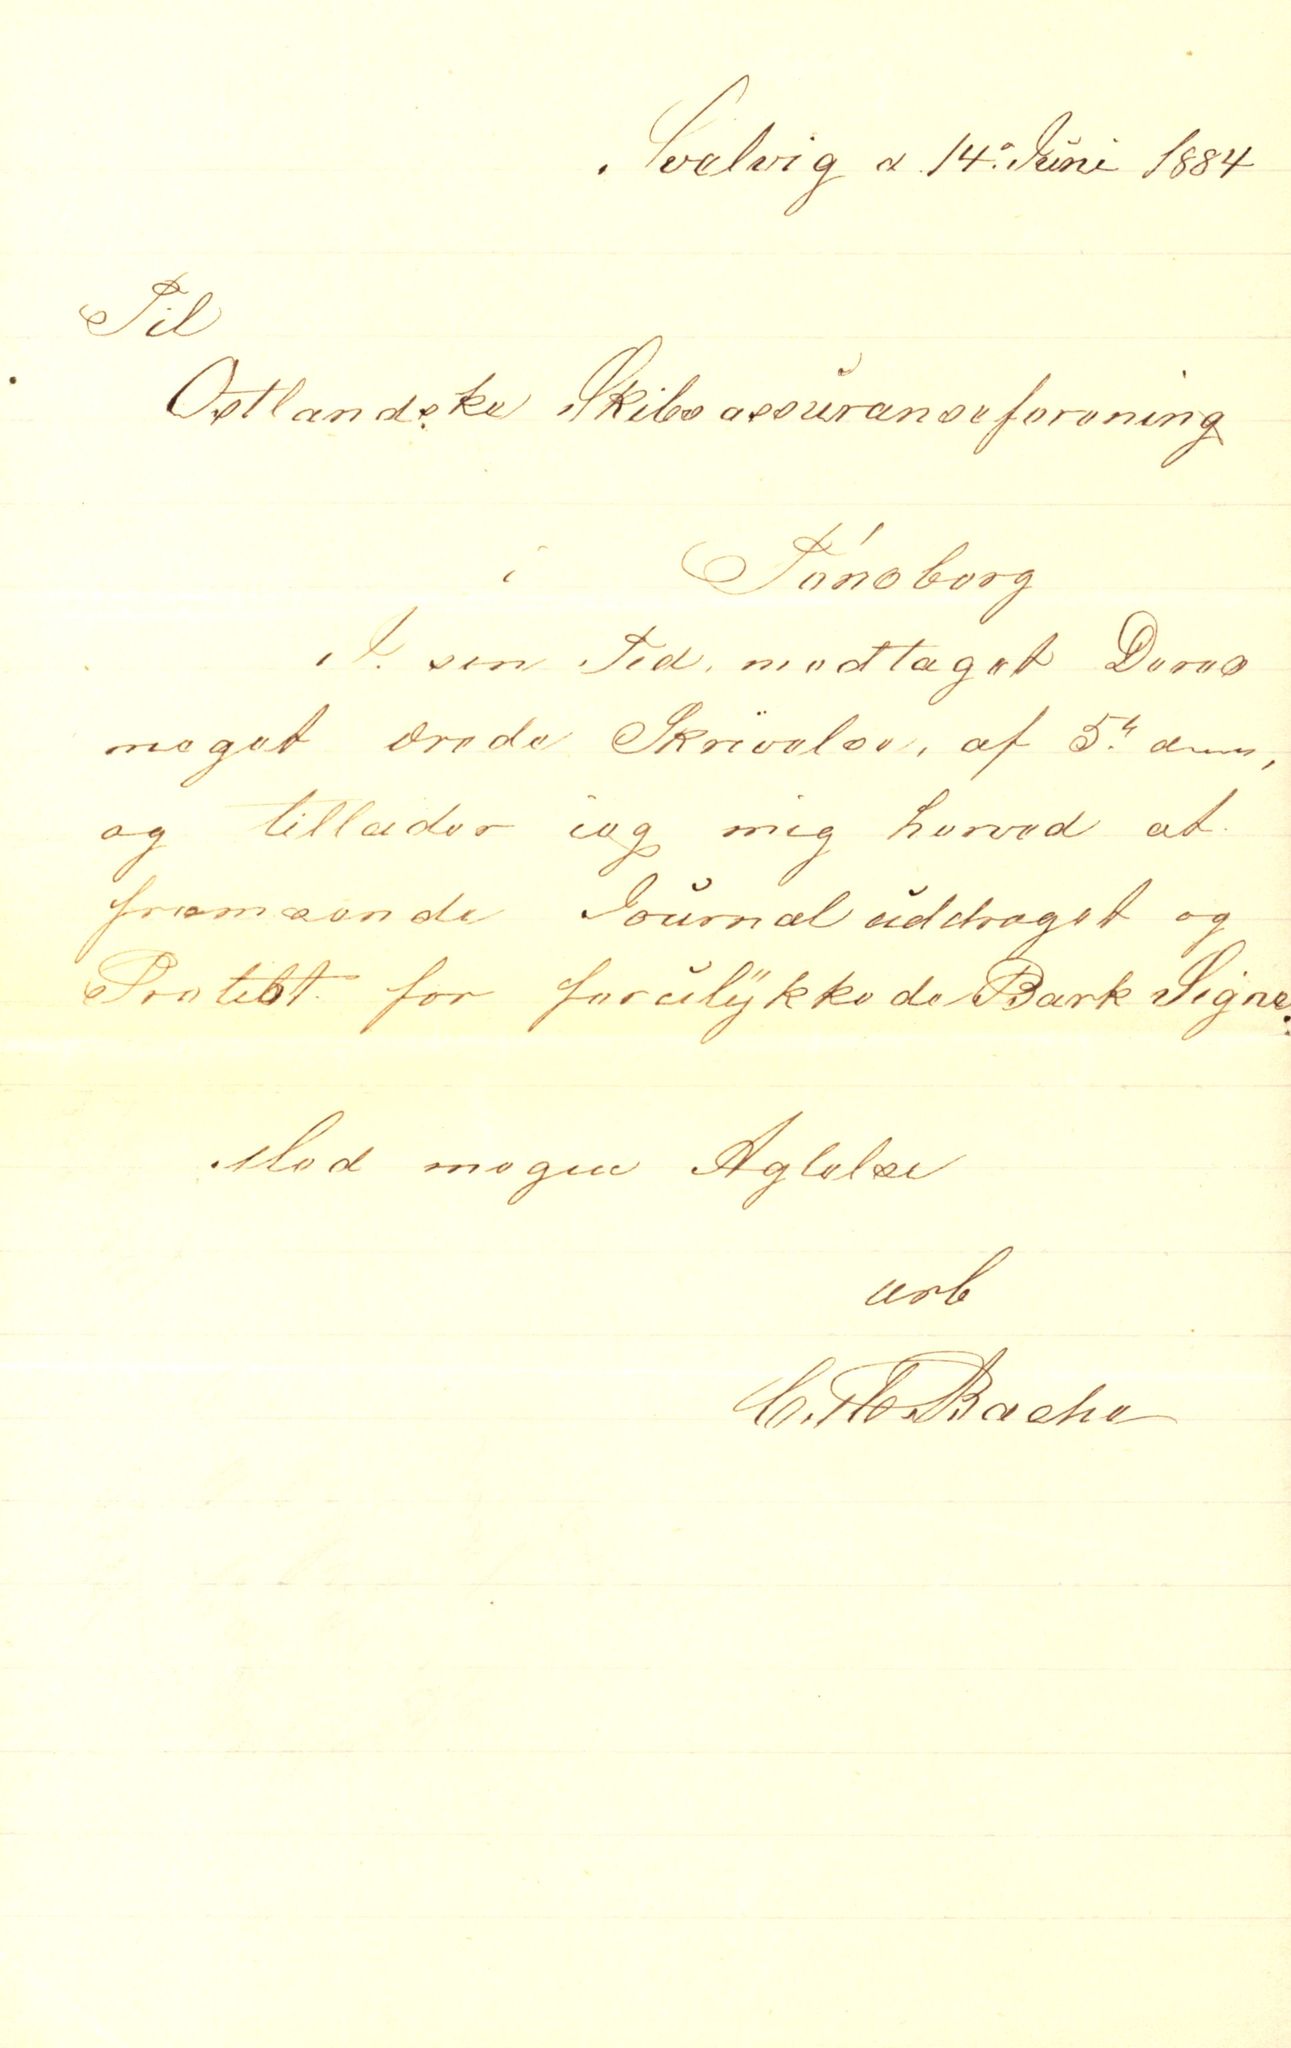 Svelvig d 14de Juni 1884
Til
Østlandske Skibsassuranseforening
i Tønsberg
I sin Tid modtaget Deres
meget ærede Skrivelse, af 5te dennes,
og tillader ieg mig herved at
fremsende Journaluddraget og
Protest for forulykkede Bark Signe.
Med megen Agtelse
ærb
Bache